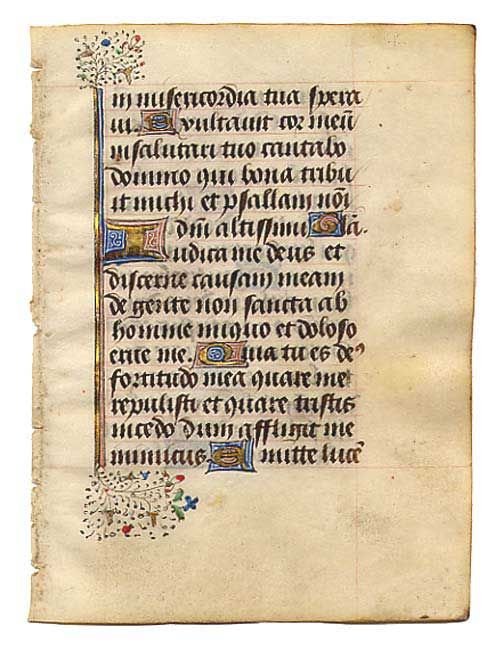 in misericordia tua spera
ui. Exultauit cor meū
in salutari tuo cantabo
domino qui bona tribu
it michi et psallam nōi
dnī altissimi Glā.
Iudica me deus et
discerne causam meam
de gente non sancta ab
homine iniquo et doloso
erue me. Quia tu es deꝰ
fortitudo mea quare me
repulisti et quare tristis
incedo dum affligit me
inimicus. Emitte lucē